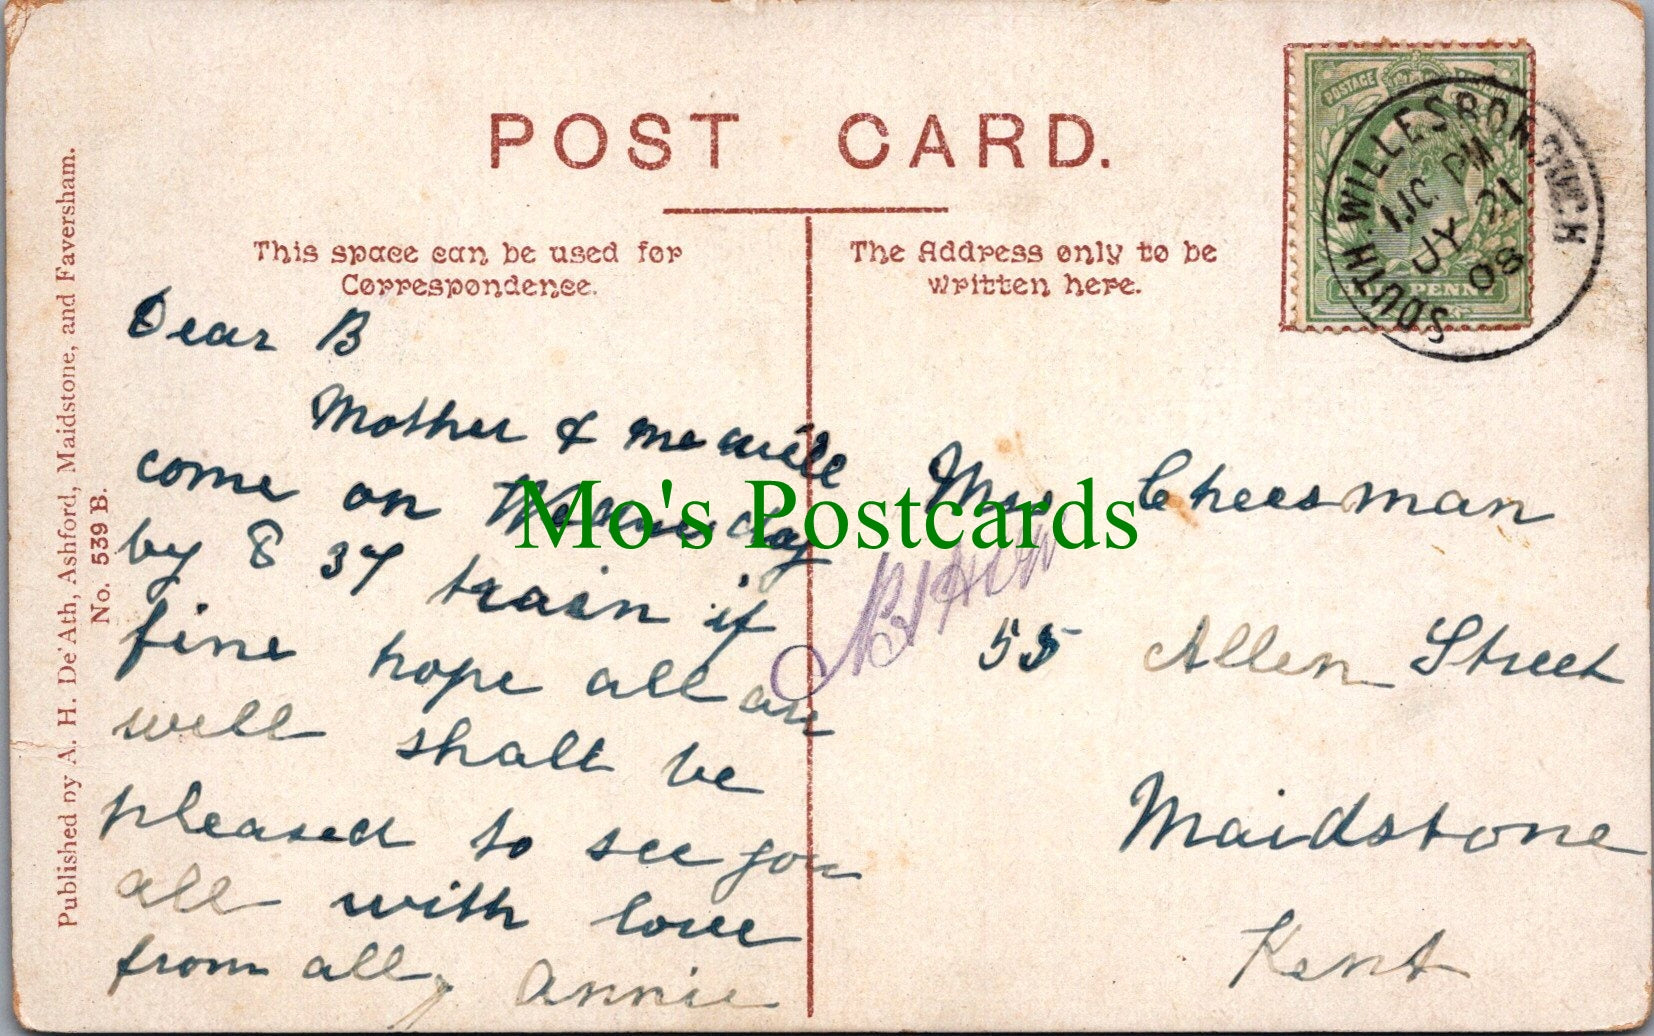 POST CARD.
This space can be used for
Correspondence.
The Address only to be
written here.
POSTAGE
HALFPENNY
SOUTH. WILLESBOROUGH
PM
JY 21
08
Published by A. H. De'Ath, Ashford, Maidstone, and Faversham.
No. 539 B.
Dear B
Mother & me will
come on Wednesday
by 8 37 train if
fine hope all are
well shall be
pleased to see you
all with love
from all, Annie
Mrs Cheesman
55 Allen Street
Maidstone
Kent
Mo's Postcards